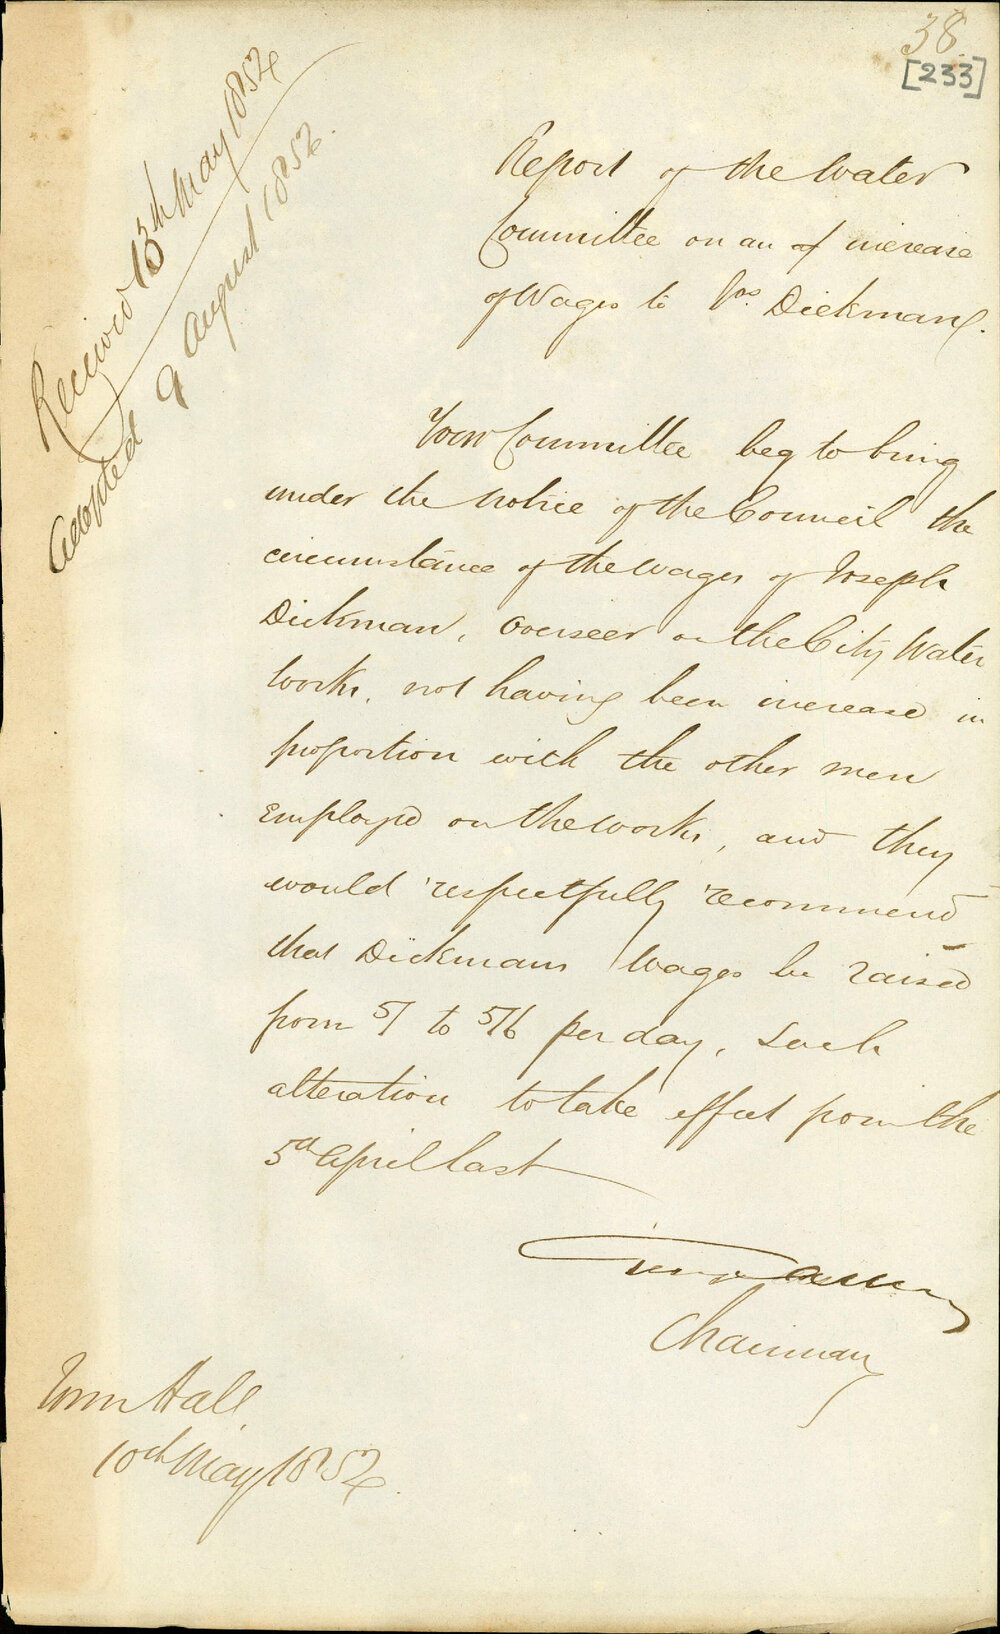 38
[233]
Received 13th May 1852
Adopted 9 August 1852.
Report of the Water
Committee on an of increase
of Wages to Jos. Dickman.
Your Committee beg to bring
under the notice of the Council the
circumstance of the wages of Joseph
Dickman, Overseer on the City Water
Works, not having been increase in
proportion with the other men
employed on the works, and they
would respectfully recommend
that Dickmans Wages be raised
from 5/ to 5/6 per day, Such
alteration to take effect from the
5th April last
Chairman
Town Hall
10th May 1852.